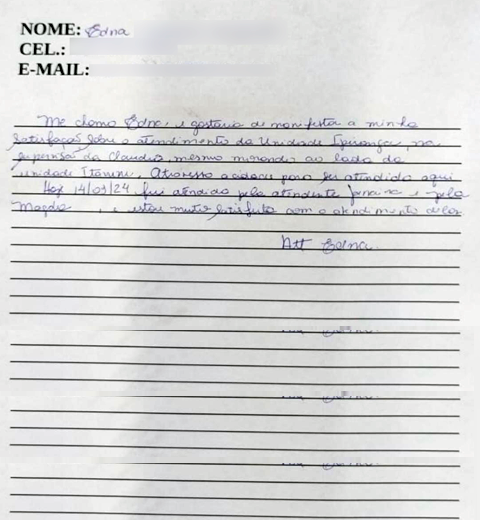 NOME: Edna
CEL.:
E-MAIL:
Me chamo Edna, e gostaria de manifestar a minha
satisfação sobre o atendimento da Unidade Ipiranga, na
supervisão da Claudia, mesmo morando ao lado da
unidade Itavuvu. Atravesso a cidade para ser atendida aqui
Hoje 14/03/24 fui atendida pela atendente e pela
Magda, e estou muito satisfeita com o atendimento delas
Att Edna.